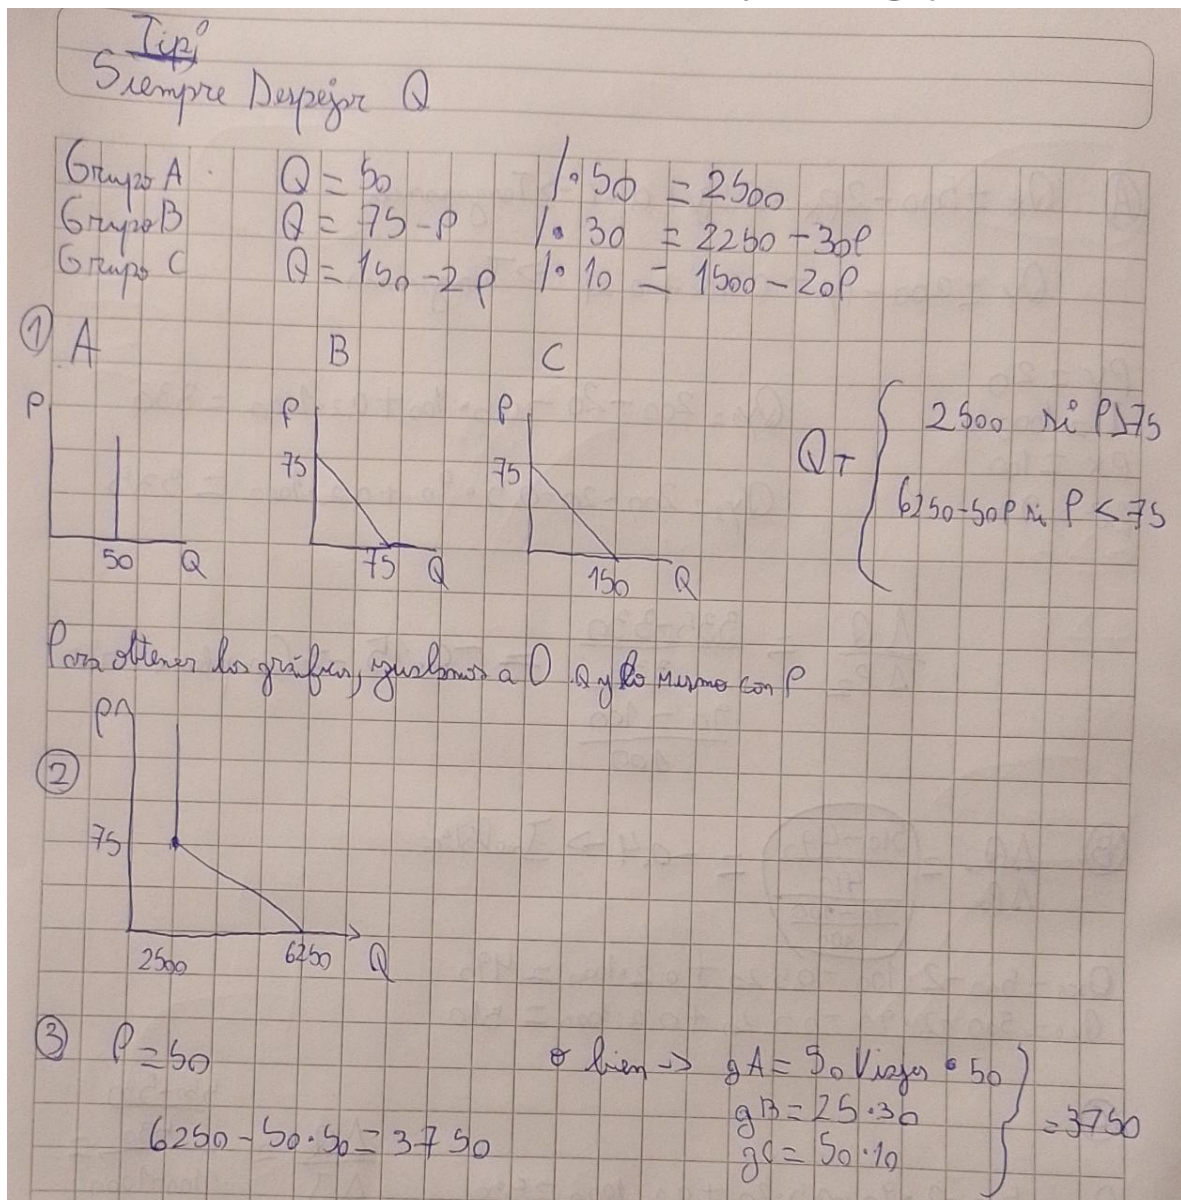 Tip:
Siempre Despejar Q
Grupo A Q = 50 /· 50 = 2500
Grupo B Q = 75 - P /· 30 = 2250 - 30P
Grupo C Q = 150 - 2P /· 10 = 1500 - 20P
① A B C
P P P
75 75
50 Q 75 Q 150 Q
QT { 2500 si P>75
6250-50P si P<75
Para obtener los gráficos, igualamos a 0 Q y lo mismo con P
②
P
75
2500 6250 Q
③ P = 50 o bien → gA = 50 Viajes · 50
gB = 25 · 30
6250 - 50·50 = 3750 gC = 50·10 } = 3750